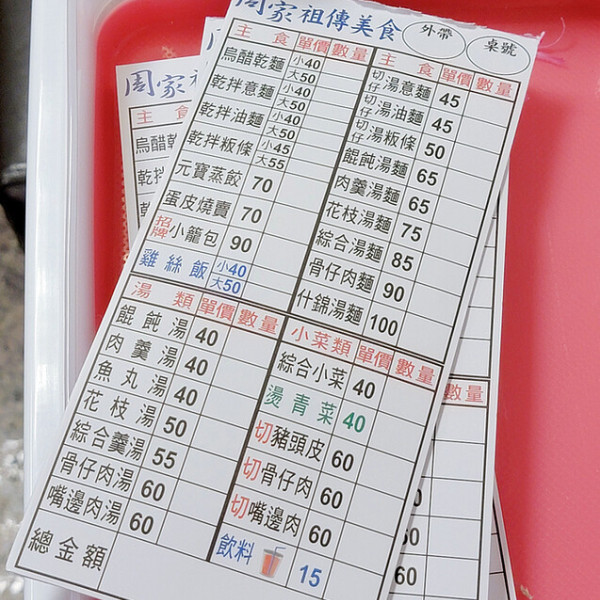 周家祖傳美食 外帶 桌號
主食 單價 數量
烏醋乾麵 小40 大50
乾拌意麵 小40 大50
乾拌油麵 小40 大50
乾拌粄條 小45 大55
元寶蒸餃 70
蛋皮燒賣 70
招牌小籠包 90
雞絲飯 小40 大50
主食 單價 數量
切仔湯意麵 45
切仔湯油麵 45
切仔湯粄條 50
餛飩湯麵 65
肉羹湯麵 65
花枝湯麵 75
綜合湯麵 85
骨仔肉麵 90
什錦湯麵 100
湯類 單價 數量
餛飩湯 40
肉羹湯 40
魚丸湯 40
花枝湯 50
綜合羹湯 55
骨仔肉湯 60
嘴邊肉湯 60
總金額
小菜類 單價 數量
綜合小菜 40
燙青菜 40
切豬頭皮 60
切骨仔肉 60
切嘴邊肉 60
飲料 15
周家祖
主食
烏醋乾
乾拌
乾
數量
60